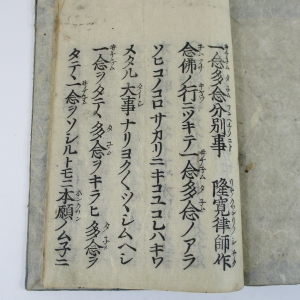 一念多念分別事　隆寛律師作
念佛ノ行ニツキテ一念多念ノアラ
ソヒコノコロサカリニキコユコレハキワ
メタル大事ナリヨク〱ツヽシムヘシ
一念ヲタテヽ多念ヲキラヒ多念ヲ
タテヽ一念ヲソシルトモニ本願ノムネニ